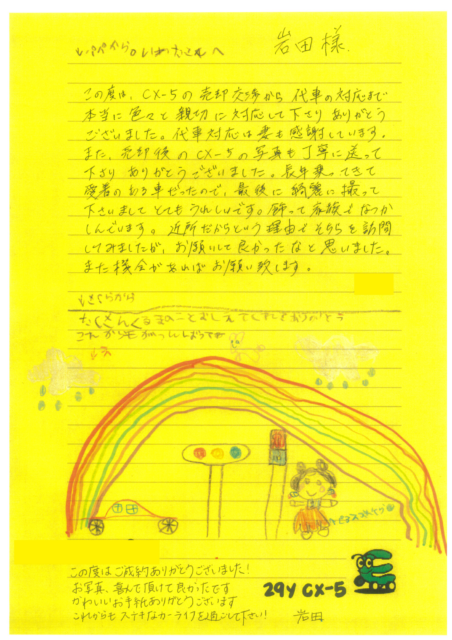 岩田様
この度は、CX-5の売却交渉から代車の対応まで
本当に色々と親切に対応して下さりありがとう
ございました。代車対応は妻も感謝しています。
また、売却後のCX-5の写真も丁寧に送って
下さりありがとうございました。長年乗ってきて
愛着のある車だったので、最後に綺麗に撮って
下さいましてとてもうれしいです。飾って家族でなつか
しんでいます。近所だからという理由でそちらを訪問
してみましたが、お願いして良かったなと思いました。
また機会があればお願い致します。
たくさんくるまのことおしえてくれてありがとう
これからも
この度はご成約ありがとうございました!
お写真、喜んで頂けて良かったです
かわいいお手紙ありがとうございます
これからもステキなカーライフを過ごして下さい!
岩田
29Y CX-5